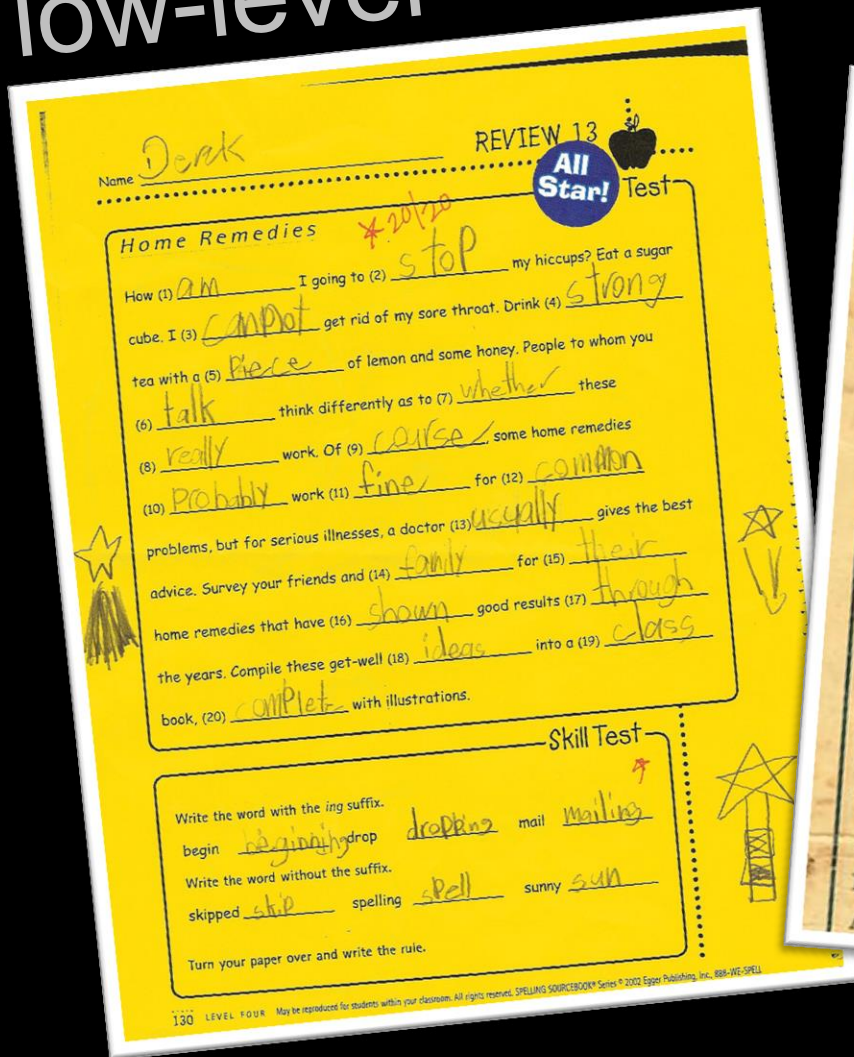 low-level
Name Derek
REVIEW 13
All
Star!
Test
Home Remedies
20/20
How (1) am I going to (2) stop my hiccups? Eat a sugar
cube. I (3) cannot get rid of my sore throat. Drink (4) strong
tea with a (5) Piece of lemon and some honey. People to whom you
(6) talk think differently as to (7) whether these
(8) really work. Of (9) course, some home remedies
(10) Probably work (11) fine for (12) common
problems, but for serious illnesses, a doctor (13) usually gives the best
advice. Survey your friends and (14) family for (15) their
home remedies that have (16) shown good results (17) through
the years. Compile these get-well (18) ideas into a (19) class
book, (20) complete with illustrations.
Skill Test
Write the word with the ing suffix.
begin beginning drop dropping mail mailing
Write the word without the suffix.
skipped skip spelling spell sunny sun
Turn your paper over and write the rule.
130 LEVEL FOUR May be reproduced for students within your classroom. All rights reserved. SPELLING SOURCEBOOK® Series © 2002 Egger Publishing, Inc., 888-WE-SPELL